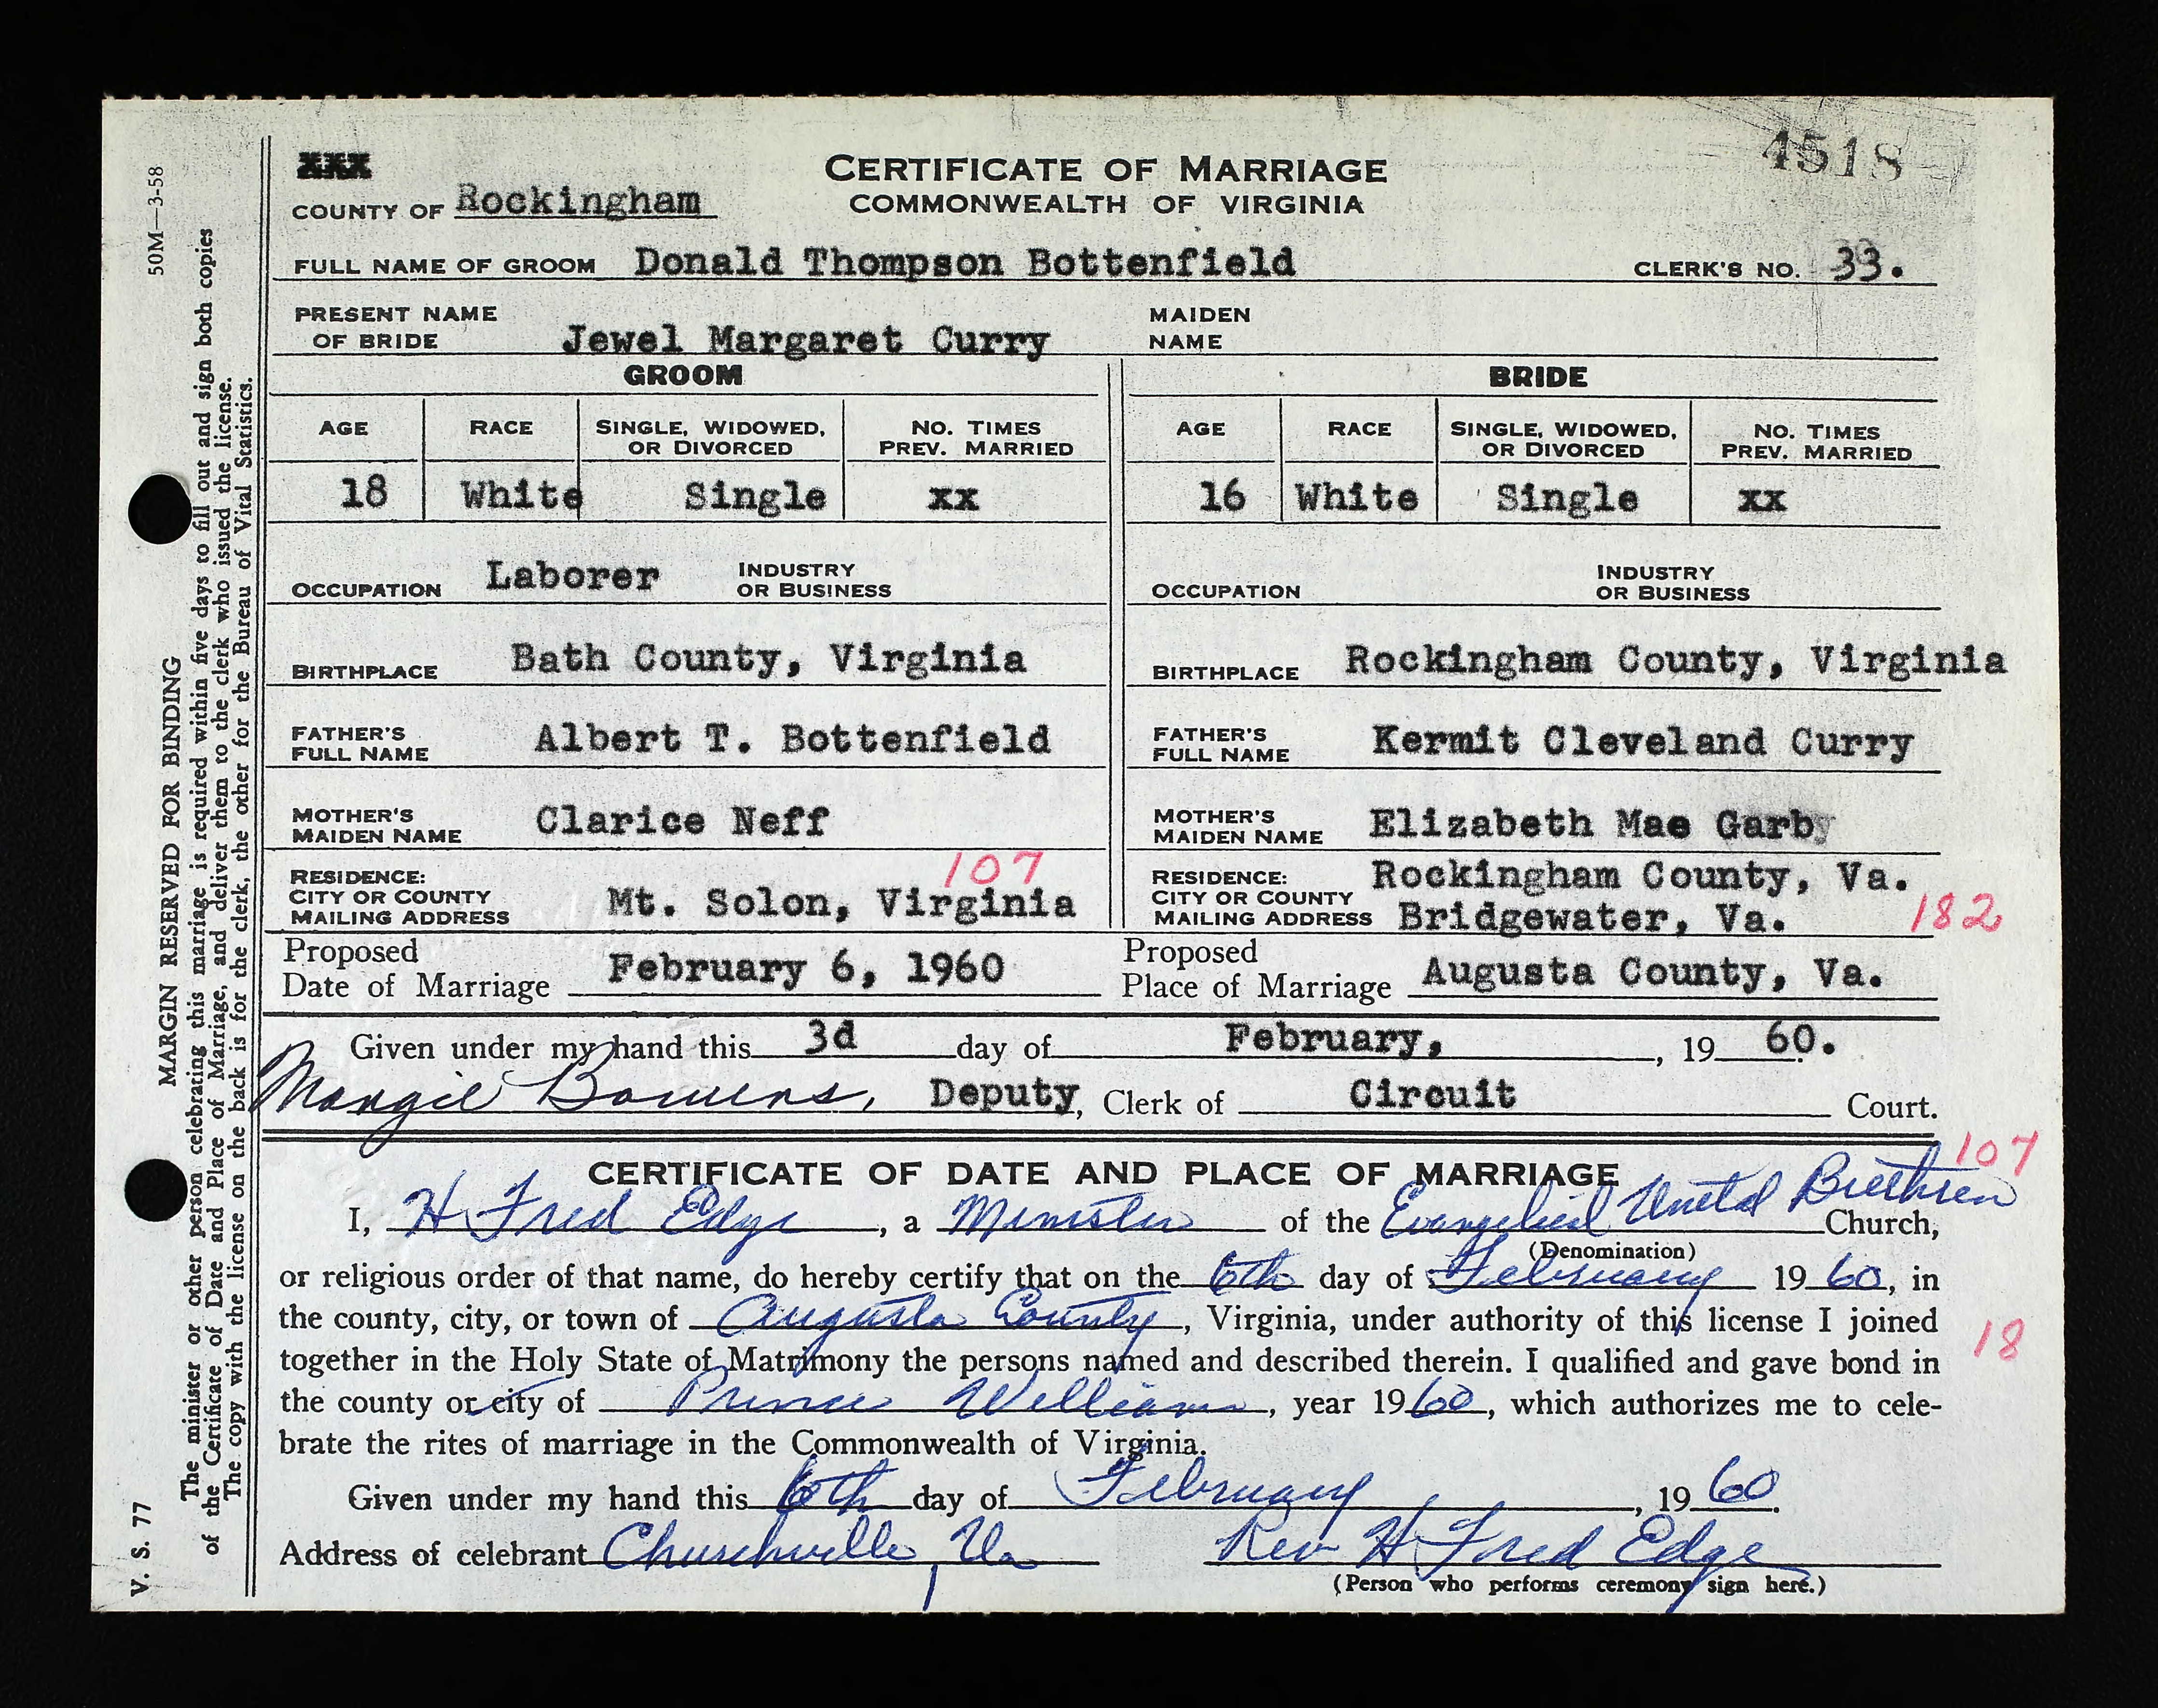 XXX
CERTIFICATE OF MARRIAGE
4518
COUNTY OF Rockingham
COMMONWEALTH OF VIRGINIA
FULL NAME OF GROOM Donald Thompson Bottenfield CLERK'S NO. 33.
PRESENT NAME OF BRIDE Jewel Margaret Curry MAIDEN NAME
GROOM BRIDE
AGE RACE SINGLE, WIDOWED, OR DIVORCED NO. TIMES PREV. MARRIED AGE RACE SINGLE, WIDOWED, OR DIVORCED NO. TIMES PREV. MARRIED
18 White Single xx 16 White Single xx
OCCUPATION Laborer INDUSTRY OR BUSINESS OCCUPATION INDUSTRY OR BUSINESS
BIRTHPLACE Bath County, Virginia BIRTHPLACE Rockingham County, Virginia
FATHER'S FULL NAME Albert T. Bottenfield FATHER'S FULL NAME Kermit Cleveland Curry
MOTHER'S MAIDEN NAME Clarice Neff MOTHER'S MAIDEN NAME Elizabeth Mae Garby
107
RESIDENCE: CITY OR COUNTY MAILING ADDRESS Mt. Solon, Virginia RESIDENCE: CITY OR COUNTY MAILING ADDRESS Rockingham County, Va. Bridgewater, Va. 182
Proposed Date of Marriage February 6, 1960 Proposed Place of Marriage Augusta County, Va.
Given under my hand this 3d day of February, , 19 60.
Margie Bowers, Deputy, Clerk of Circuit Court.
107
CERTIFICATE OF DATE AND PLACE OF MARRIAGE
I, H Fred Edge, a Minister of the Evangelical United Brethren Church,
(Denomination)
or religious order of that name, do hereby certify that on the 6th day of February 19 60, in
the county, city, or town of Augusta County, Virginia, under authority of this license I joined
18
together in the Holy State of Matrimony the persons named and described therein. I qualified and gave bond in
the county or city of Prince William, year 1960, which authorizes me to cele-
brate the rites of marriage in the Commonwealth of Virginia.
Given under my hand this 6th day of February, 19 60.
Address of celebrant Churchville, Va Rev H Fred Edge
(Person who performs ceremony sign here.)
50M—3-58
MARGIN RESERVED FOR BINDING
The minister or other person celebrating this marriage is required within five days to fill out and sign both copies
of the Certificate of Date and Place of Marriage, and deliver them to the clerk who issued the license.
The copy with the license on the back is for the clerk, the other for the Bureau of Vital Statistics.
V. S. 77